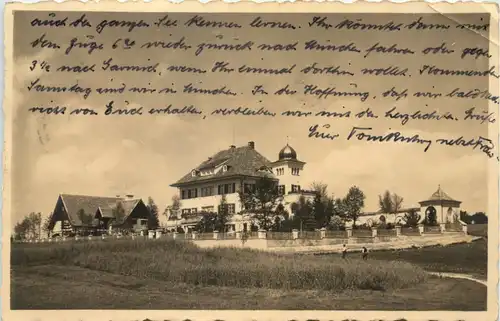 auch den ganzen See kennen lernen. Ihr könntet dann mit
dem Zuge 6³⁰ wieder zurück nach München fahren oder gegen
3¼ nach Garmisch, wenn Ihr einmal dorthin wollet. Kommenden
Samstag sind wir in München. In der Hoffnung, daß wir baldigst
nicht von Euch erhalten, verbleiben wir mit den herzlichsten Grüßen
Euer nebst Frau